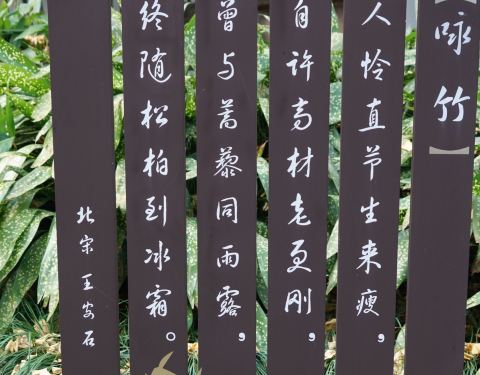 咏竹】
人怜直节生来瘦，
自许高材老更刚，
曾与蒿藜同雨露，
终随松柏到冰霜。
北宋 王安石